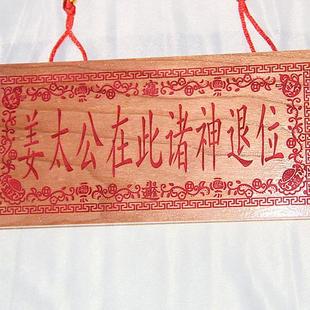 姜太公在此诸神退位